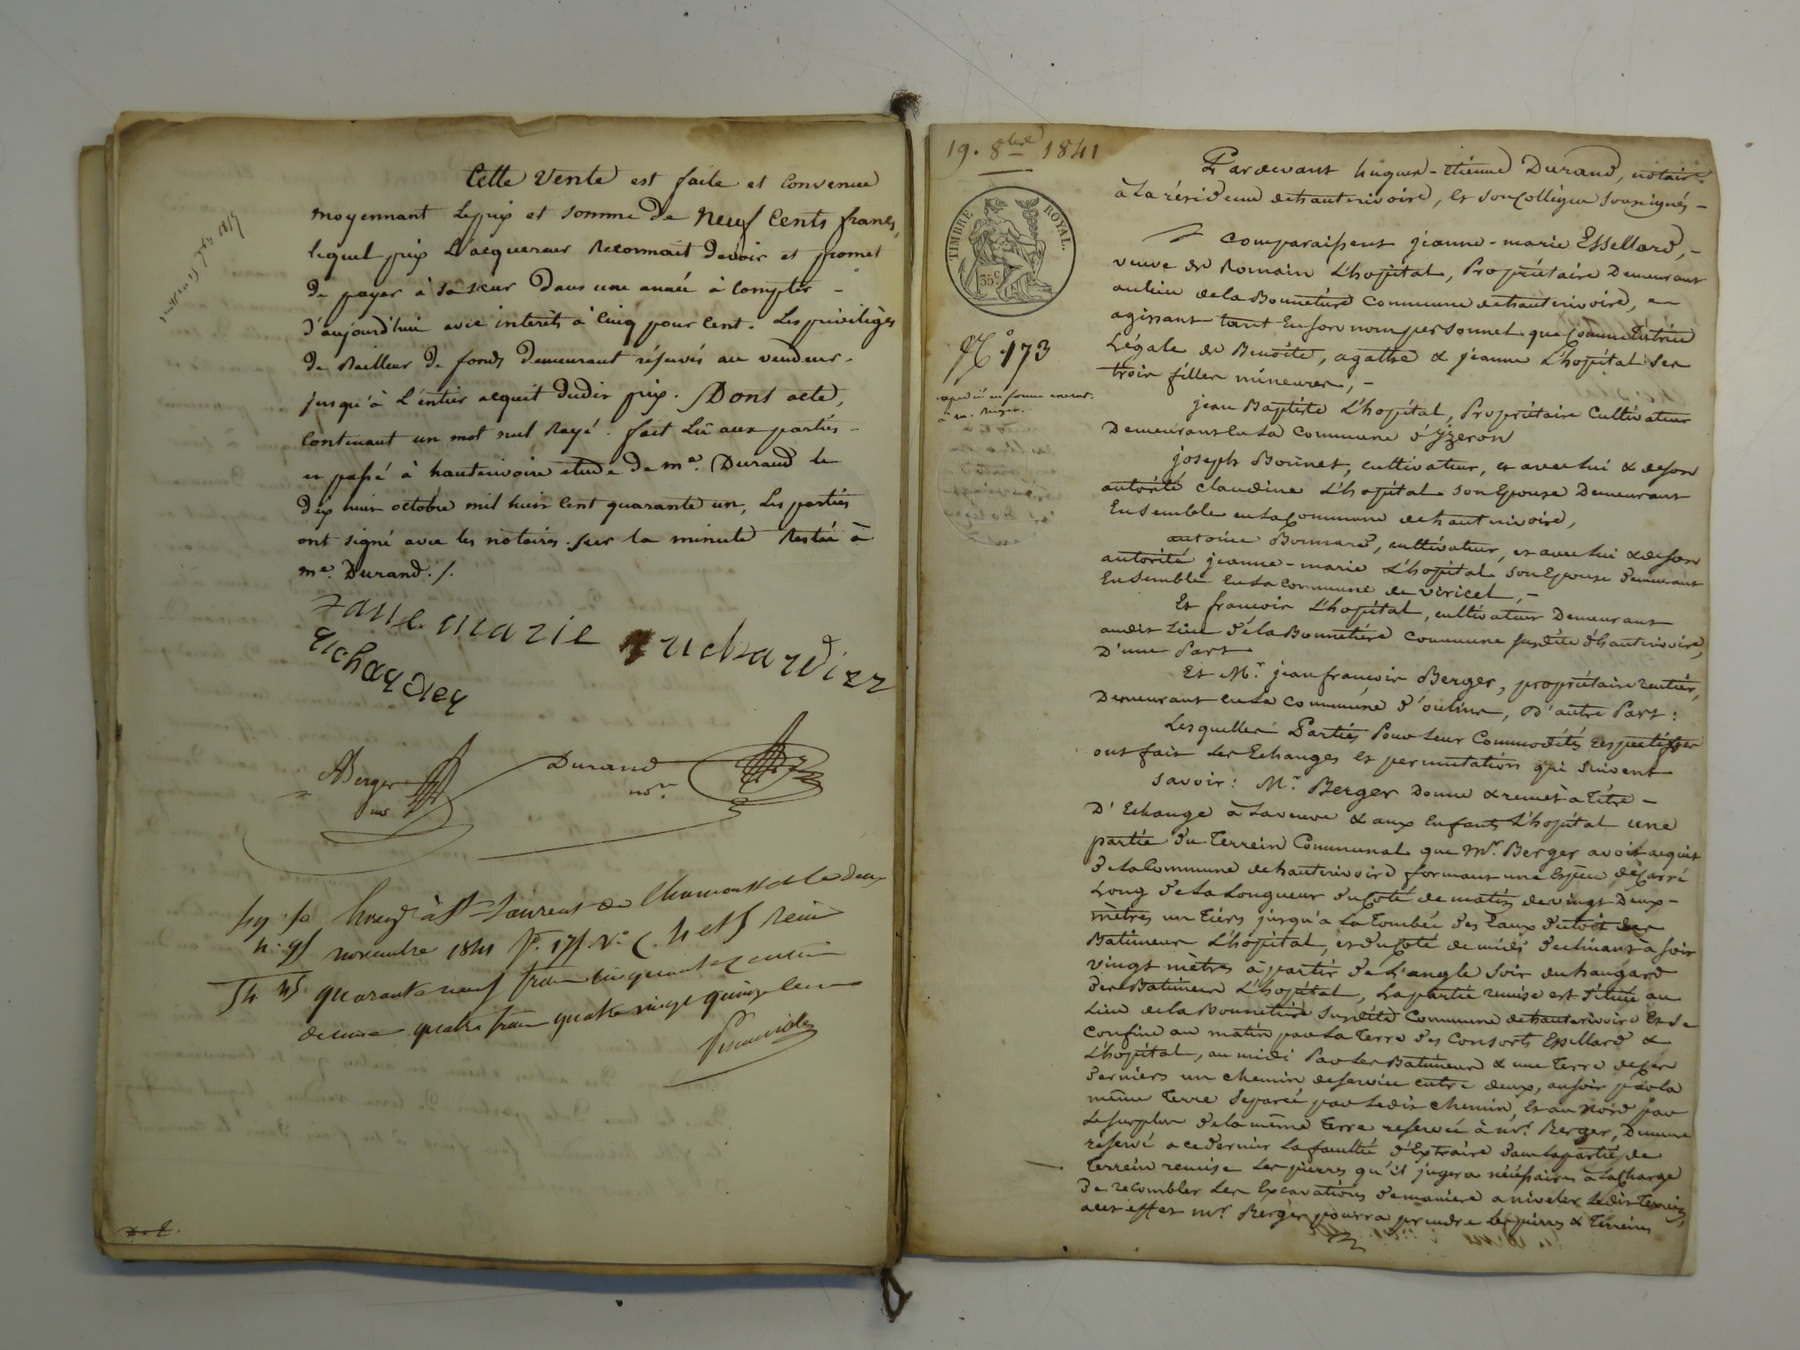 Cette Vente est faite et Convenue
moyennant Le prix et somme de Neuf Cents francs,
lequel prix L'acquereur Reconnait devoir et promet
de payer à sa sœur dans une année à Compter -
d'aujourd'hui avec interets à Cinq pour Cent. Les privilèges
de Bailleur de fonds demeurant réservés au vendeur -
jusqu'à L'entier acquit dudit prix. Dont acte,
Contenant un mot nul Rayé. fait Lû aux parties -
et passé à hauterivoire etude de me. Durand le
dix huit octobre mil huit Cent quarante un, Les parties
ont signé avec les notaires. sur la minute Restée à
me. Durand./.
Jane marie
ABerger
nre
Durand
nore
à St Laurent de Chamousset le deux
novembre 1841 fo. 175 Vo C. 4 et 5 Reçu
quarante neuf francs cinquante centimes
decime quatre francs quatre vingt quinze centimes
19. 8bre 1841
TIMBRE ROYAL.
35c
No. 173
Pardevant hugues-Etienne Durand, notaire
à La résidence dehauterivoire, et son Collègue soussignés -
Comparaissent jeanne-marie Essellard, -
veuve de Romain L'hopital, Propriétaire Demeurant
au lieu de la Bonnetière Commune dehauterivoire, -
agissant tant En son nom personnel que Comme Tutrice
Légale de Benoite, agathe & jeanne L'hopital ses
trois filles mineures, -
jean Baptiste L'hopital, Propriétaire Cultivateur
Demeurant En La Commune d'yzeron
joseph Bonnet, cultivateur, et avec lui & de son
autorité Claudine L'hopital son Epouse Demeurant
Ensemble en La Commune dehauterivoire,
antoine Bonnard, cultivateur, et avec lui & de son
autorité jeanne-marie L'hopital son Epouse demeurant
Ensemble En La Commune de Viricel, -
Et francois L'hopital, cultivateur Demeurant
audit Lieu de la Bonnetière Commune susdite d'hauterivoire,
D'une Part
Et Mr. jean francois Berger, propriétaire rentier,
Demeurant en La Commune d'oulins, D'autre Part:
Lesquelles Parties Pour Leur Commodités respectives
ont fait Les Echanges et permutations qui suivent
Savoir: Mr. Berger Donne & remet à Titre -
D'Echange à La veuve & aux Enfants L'hopital une
partie du Terrein Communal que Mr. Berger avoit acquit
de La Commune dehauterivoire formant une Espèce de Carré
Long de La Longueur du Coté de matin de vingt Deux -
mètres un Tiers jusqu'à La Tombée des Eaux du toit des
Batimens L'hopital, et du Coté de midi declinant à soir
vingt mètres à partir de L'angle Soir du hangard
des Batimens L'hopital, La partie remise est située au
Lieu de la Bonnetière susdite Commune dehauterivoire Et se
Confine au matin par La Terre des Consorts Essellard &
L'hopital, au midi Par Les Batimens & une Terre de Ces
derniers un chemin deservice entre deux, au soir par la
même Terre separée par Ledit Chemin, Et au Nord par
Le surplus de la même Terre reservée à mr. Berger, Demeure
reservé a ce dernier La faculté d'Extraire dans La partie de
Terrein remise Les pierres qu'il jugera nécéssaires à La Charge
de recombler Les Excavations demaniere a niveler Ledit Terrein,
a cet effet mr. Berger pourra prendre Les pierres & Terreins